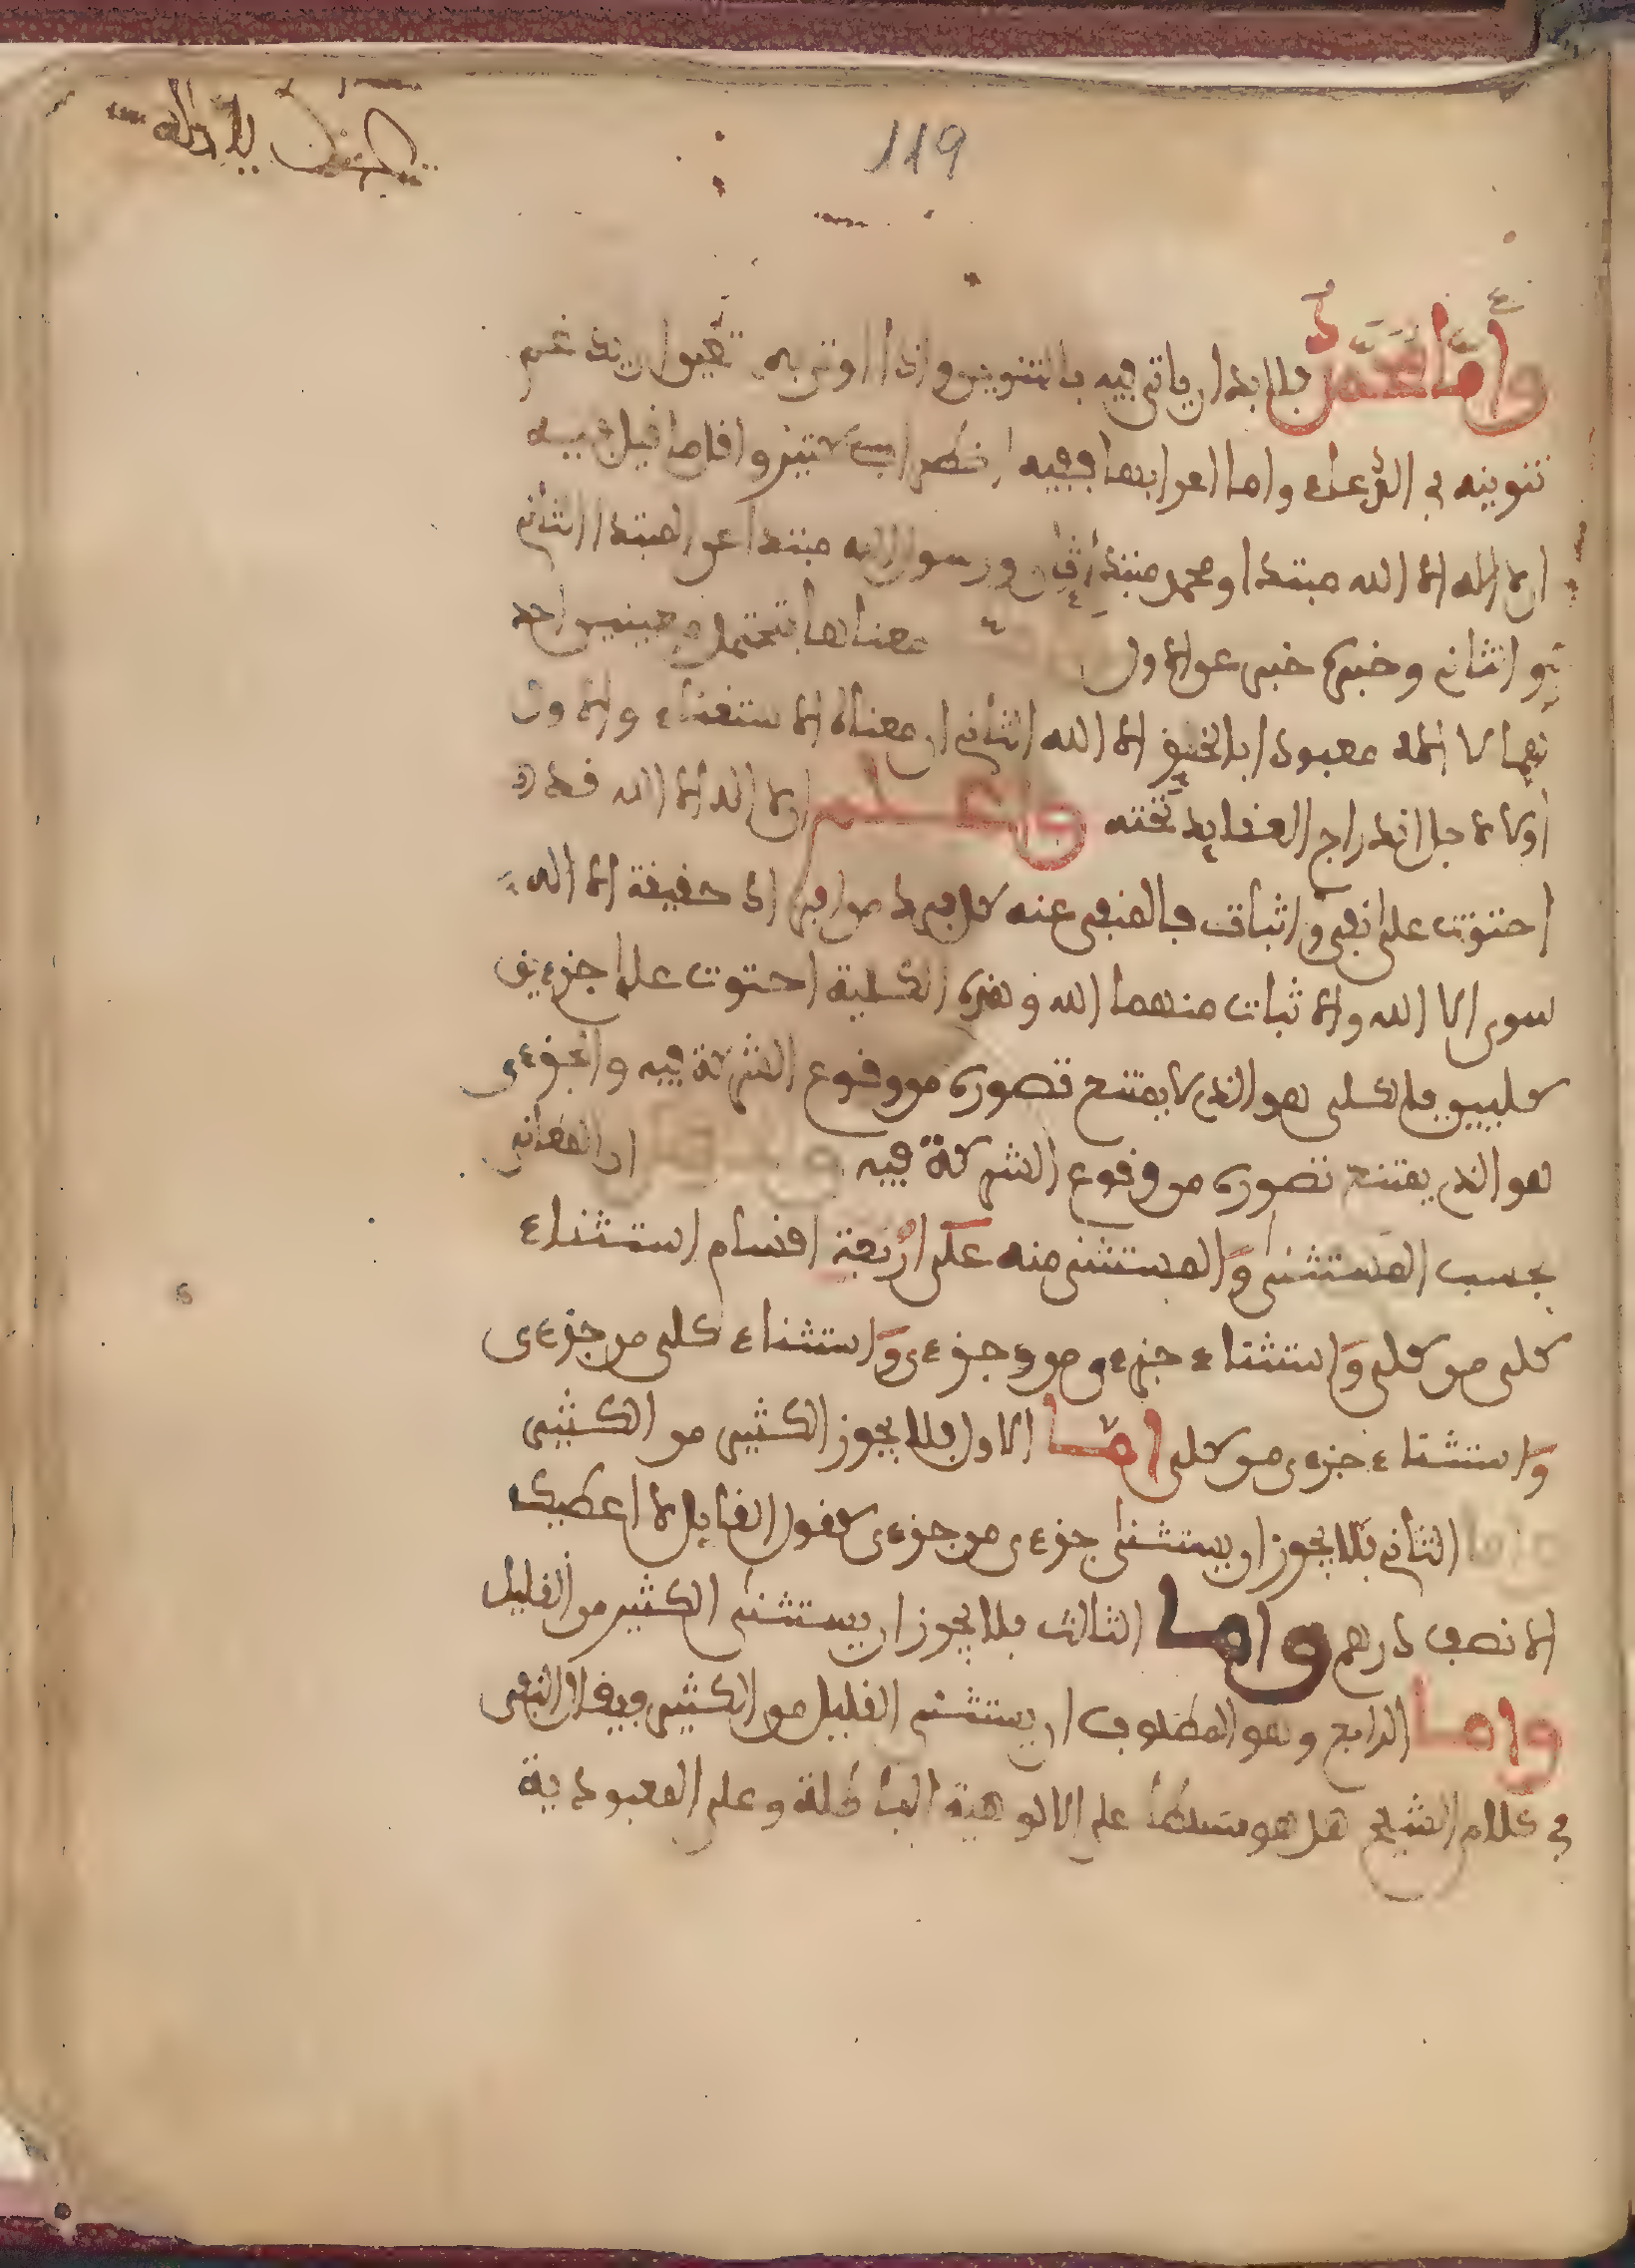 119
وأما محمد فلا بد ان ياتي فيه بالتنوين واذا اوتي به تعين ان يدغم
تنوينه في الراء واما اعرابها ففيه اضطراب كثير وافل ما فيل فيه
ان لا اله الا الله مبتدا ومحمد مبتدا ثان ورسول الله مبتدا عن المبتدا الثاني
هو الثاني وخبره خبر عن الاول معناها تحتمل وجهين احد
هما لا اله معبودا بالحق الا الله الثاني ان معناه الاستغناء والاول
أولا لاجل اندراج العقايد تحته واعلم ان لا اله الا الله قد
احتوت على نفي واثبات فالمنفي عنه كل فرد من افراد حقيقة الاله
سوى الا الله والاثبات منهما الله وهذه الكلية احتوت على جزءين
كليين فالكلي هو الذي لا يمتنع تصوره من وقوع الشركة فيه والجزءي
هو الذي يمتنع تصوره من وقوع الشركة فيه ان المعاني
بحسب المستثنى والمستثنى منه على اربعة اقسام استثناء
كلي من كلي واستثناء جزءي من جزءي واستثناء كلي من جزءي
واستثناء جزءي من كلي اما الاول فلا يجوز الكثير من الكثير
واما الثاني فلا يجوز ان يستثنى جزءي من جزءي كقول القايل لا اعطيك
الا نصف درهم واما الثالث فلا يجوز ان يستثنى الكثير من القليل
واما الرابع وهو المطلوب ان يستثنى القليل من الكثير ويقال النفي
في كلام الشيخ هل هو مسلط على الالوهية الباطلة وعلى المعبودية